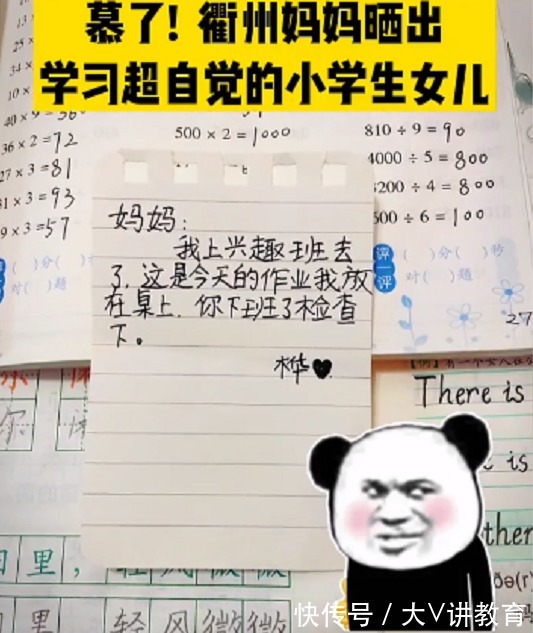 慕了！衢州妈妈晒出
学习超自觉的小学生女儿
36×2=72
27×3=81
31×3=93
9×3=57
500×2=1000
810÷9=90
4000÷5=800
3200÷4=800
600÷6=100
妈妈：
我上兴趣班去
了，这是今天的作业我放
在桌上，你下班了检查
下。
桦♥
评一评
( )分( )秒
对( )题
( )分( )秒
对( )题
27
There is
is
ther
里，轻风微微
里 轻风微微
快传号／大V讲教育